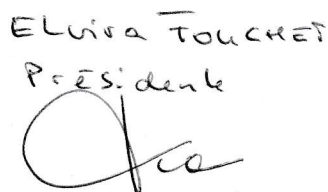 Elvira TOUCHET
Présidente